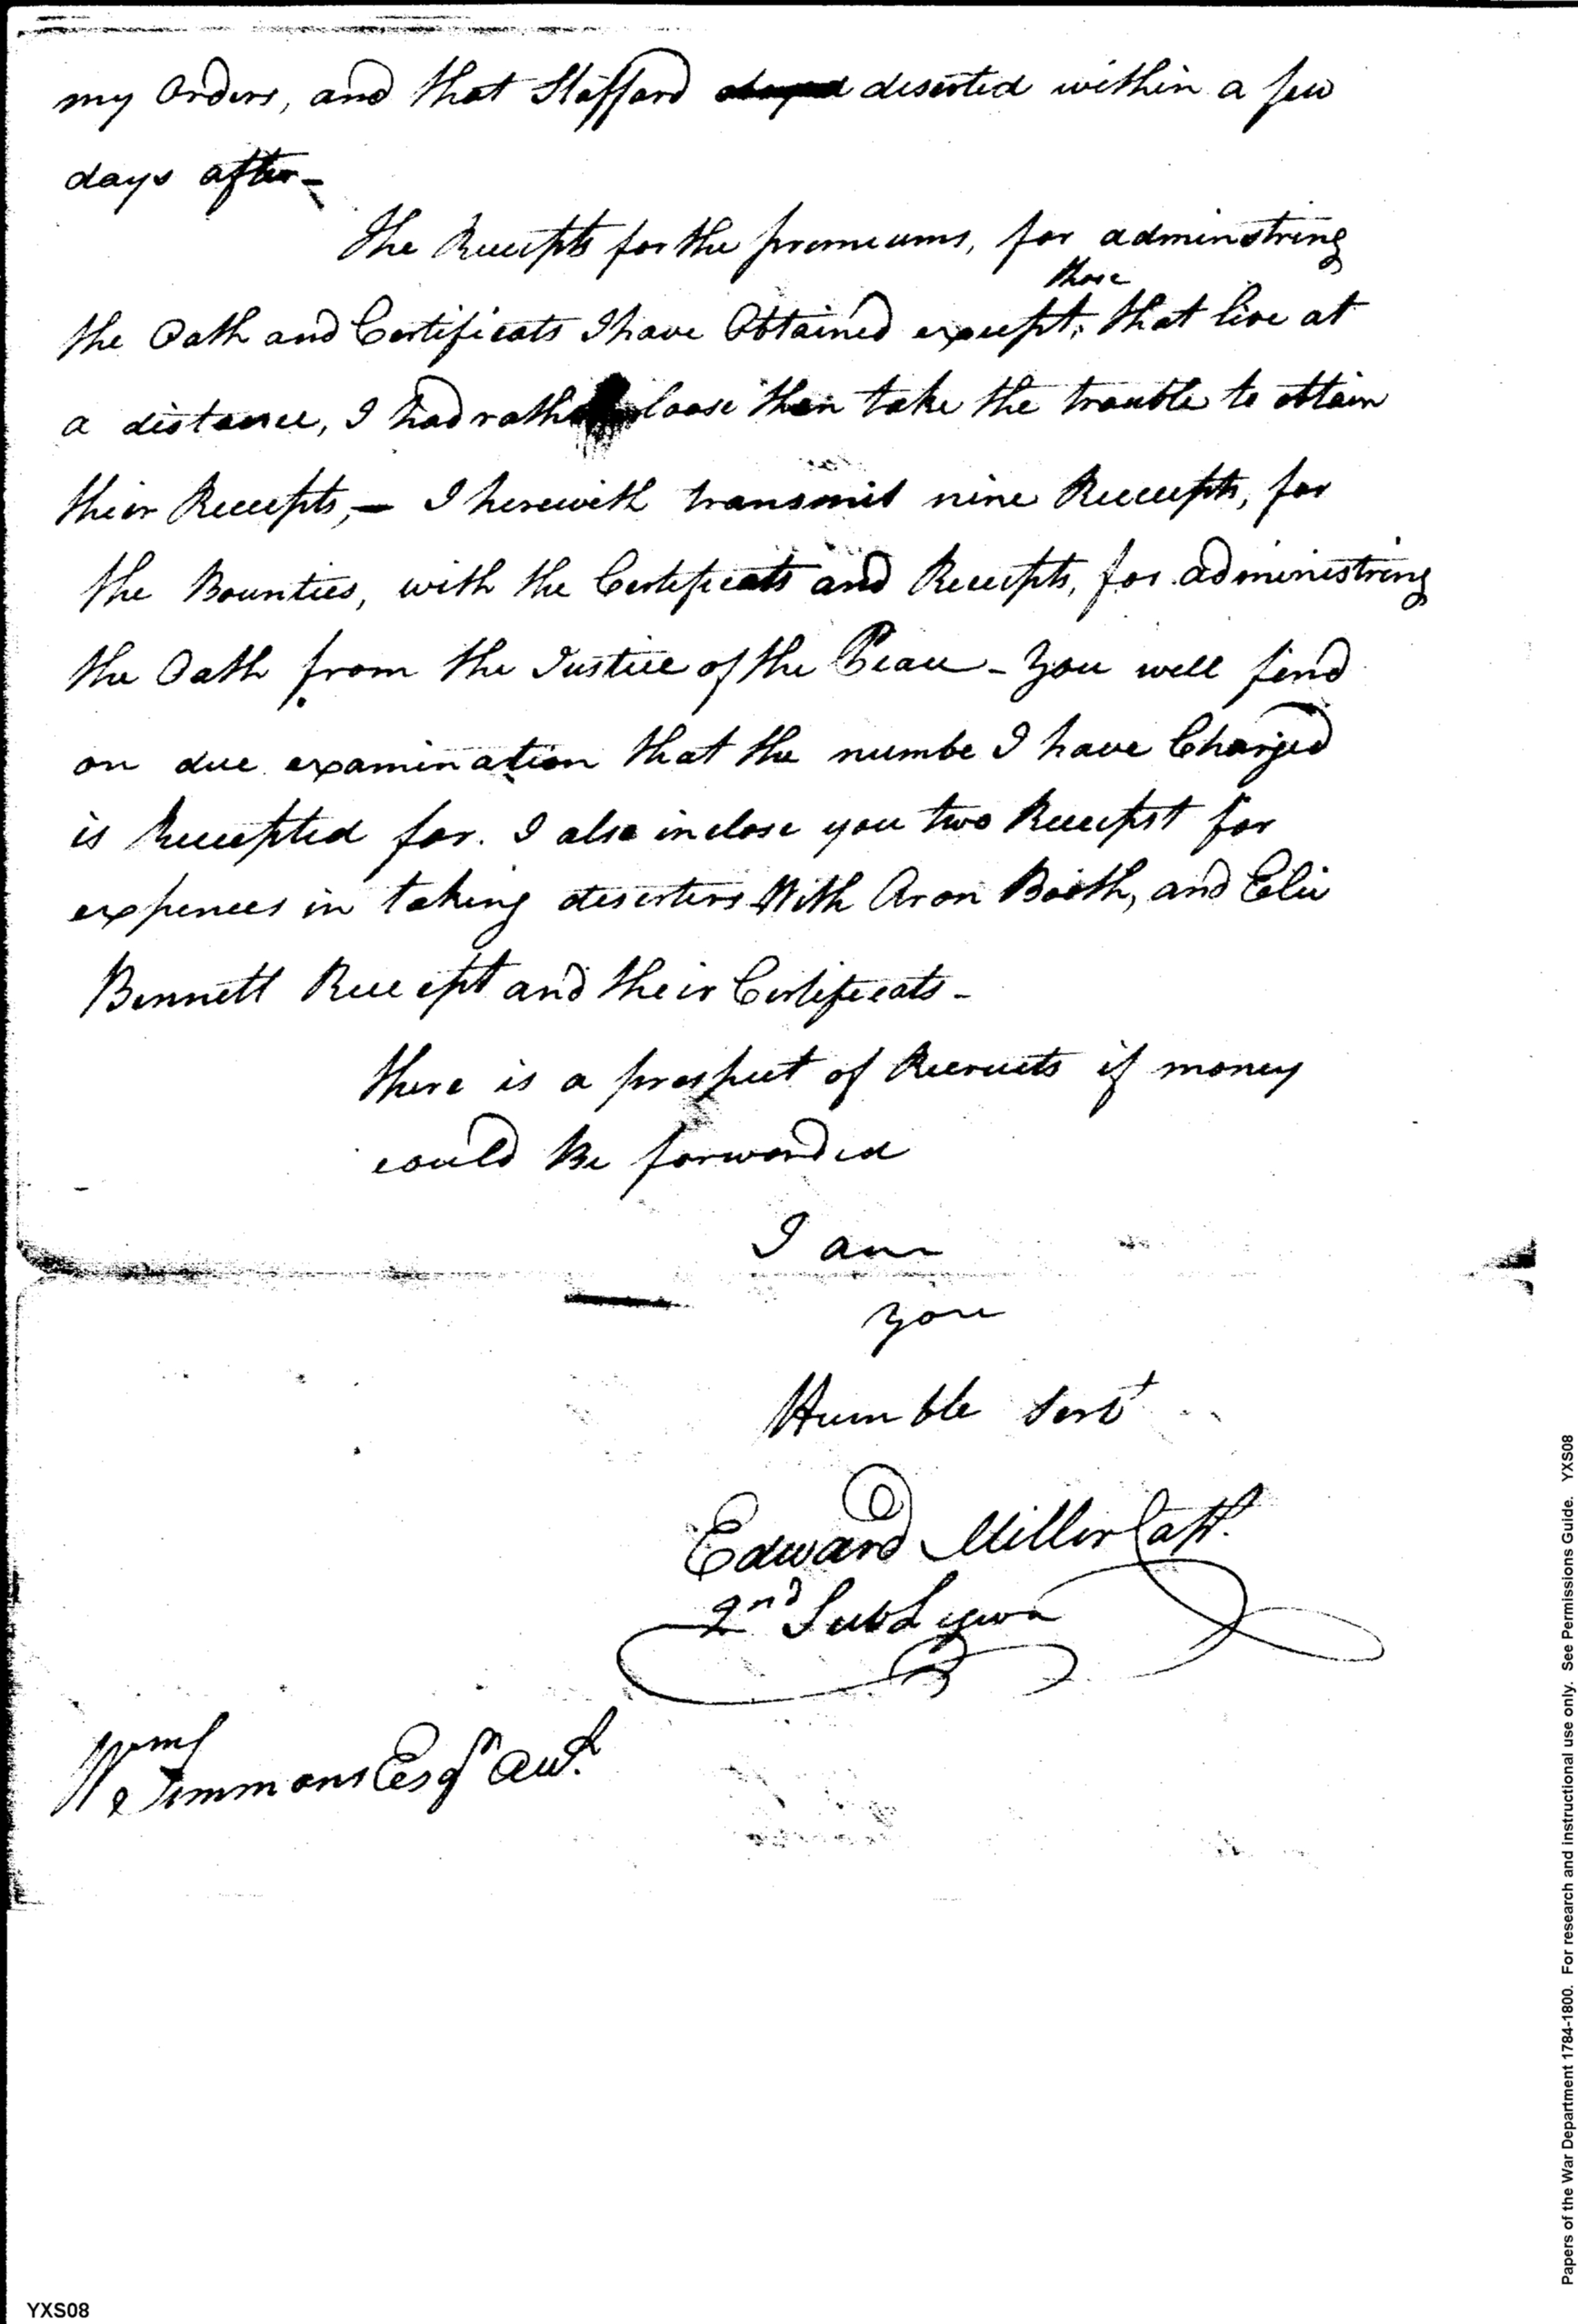 my Orders, and that Stafford deserted within a few
days after-
The Receipts for the premeums, for adminstring
those
the Oath and Certificats I have Obtained except, that live at
a distance, I had rather loose then take the trouble to obtain
their Receipts,- I herewith transmit nine Receipts, for
the Bounties, with the Certificats and Receipts, for administring
the Oath from the Justice of the Peace - You well find
on due examination that the numbe I have Charged
is Receipted for. I also inclose you two Receipst for
expences in taking deserters With Aron Booth, and Elie
Bennett Receipt and their Certificats-
there is a prospect of Recruets if money
could be forwarded
I am
your
Humble Servt
Edward Miller Capt.
2nd Sub Legion
Wm Simmons Esqr Aud.
Papers of the War Department 1784-1800. For research and instructional use only. See Permissions Guide. YXS08
YXS08